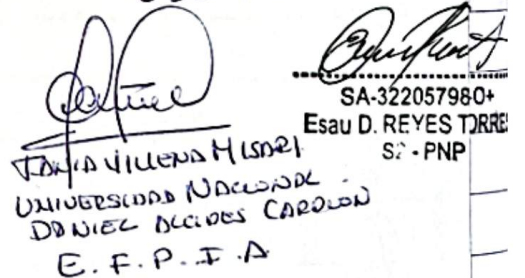 TANIA VILLENA MISARI
UNIVERSIDAD NACIONAL
DANIEL ALCIDES CARRION
E.F.P.I.A
SA-32205798-0+
Esau D. REYES TORRES
S2 - PNP